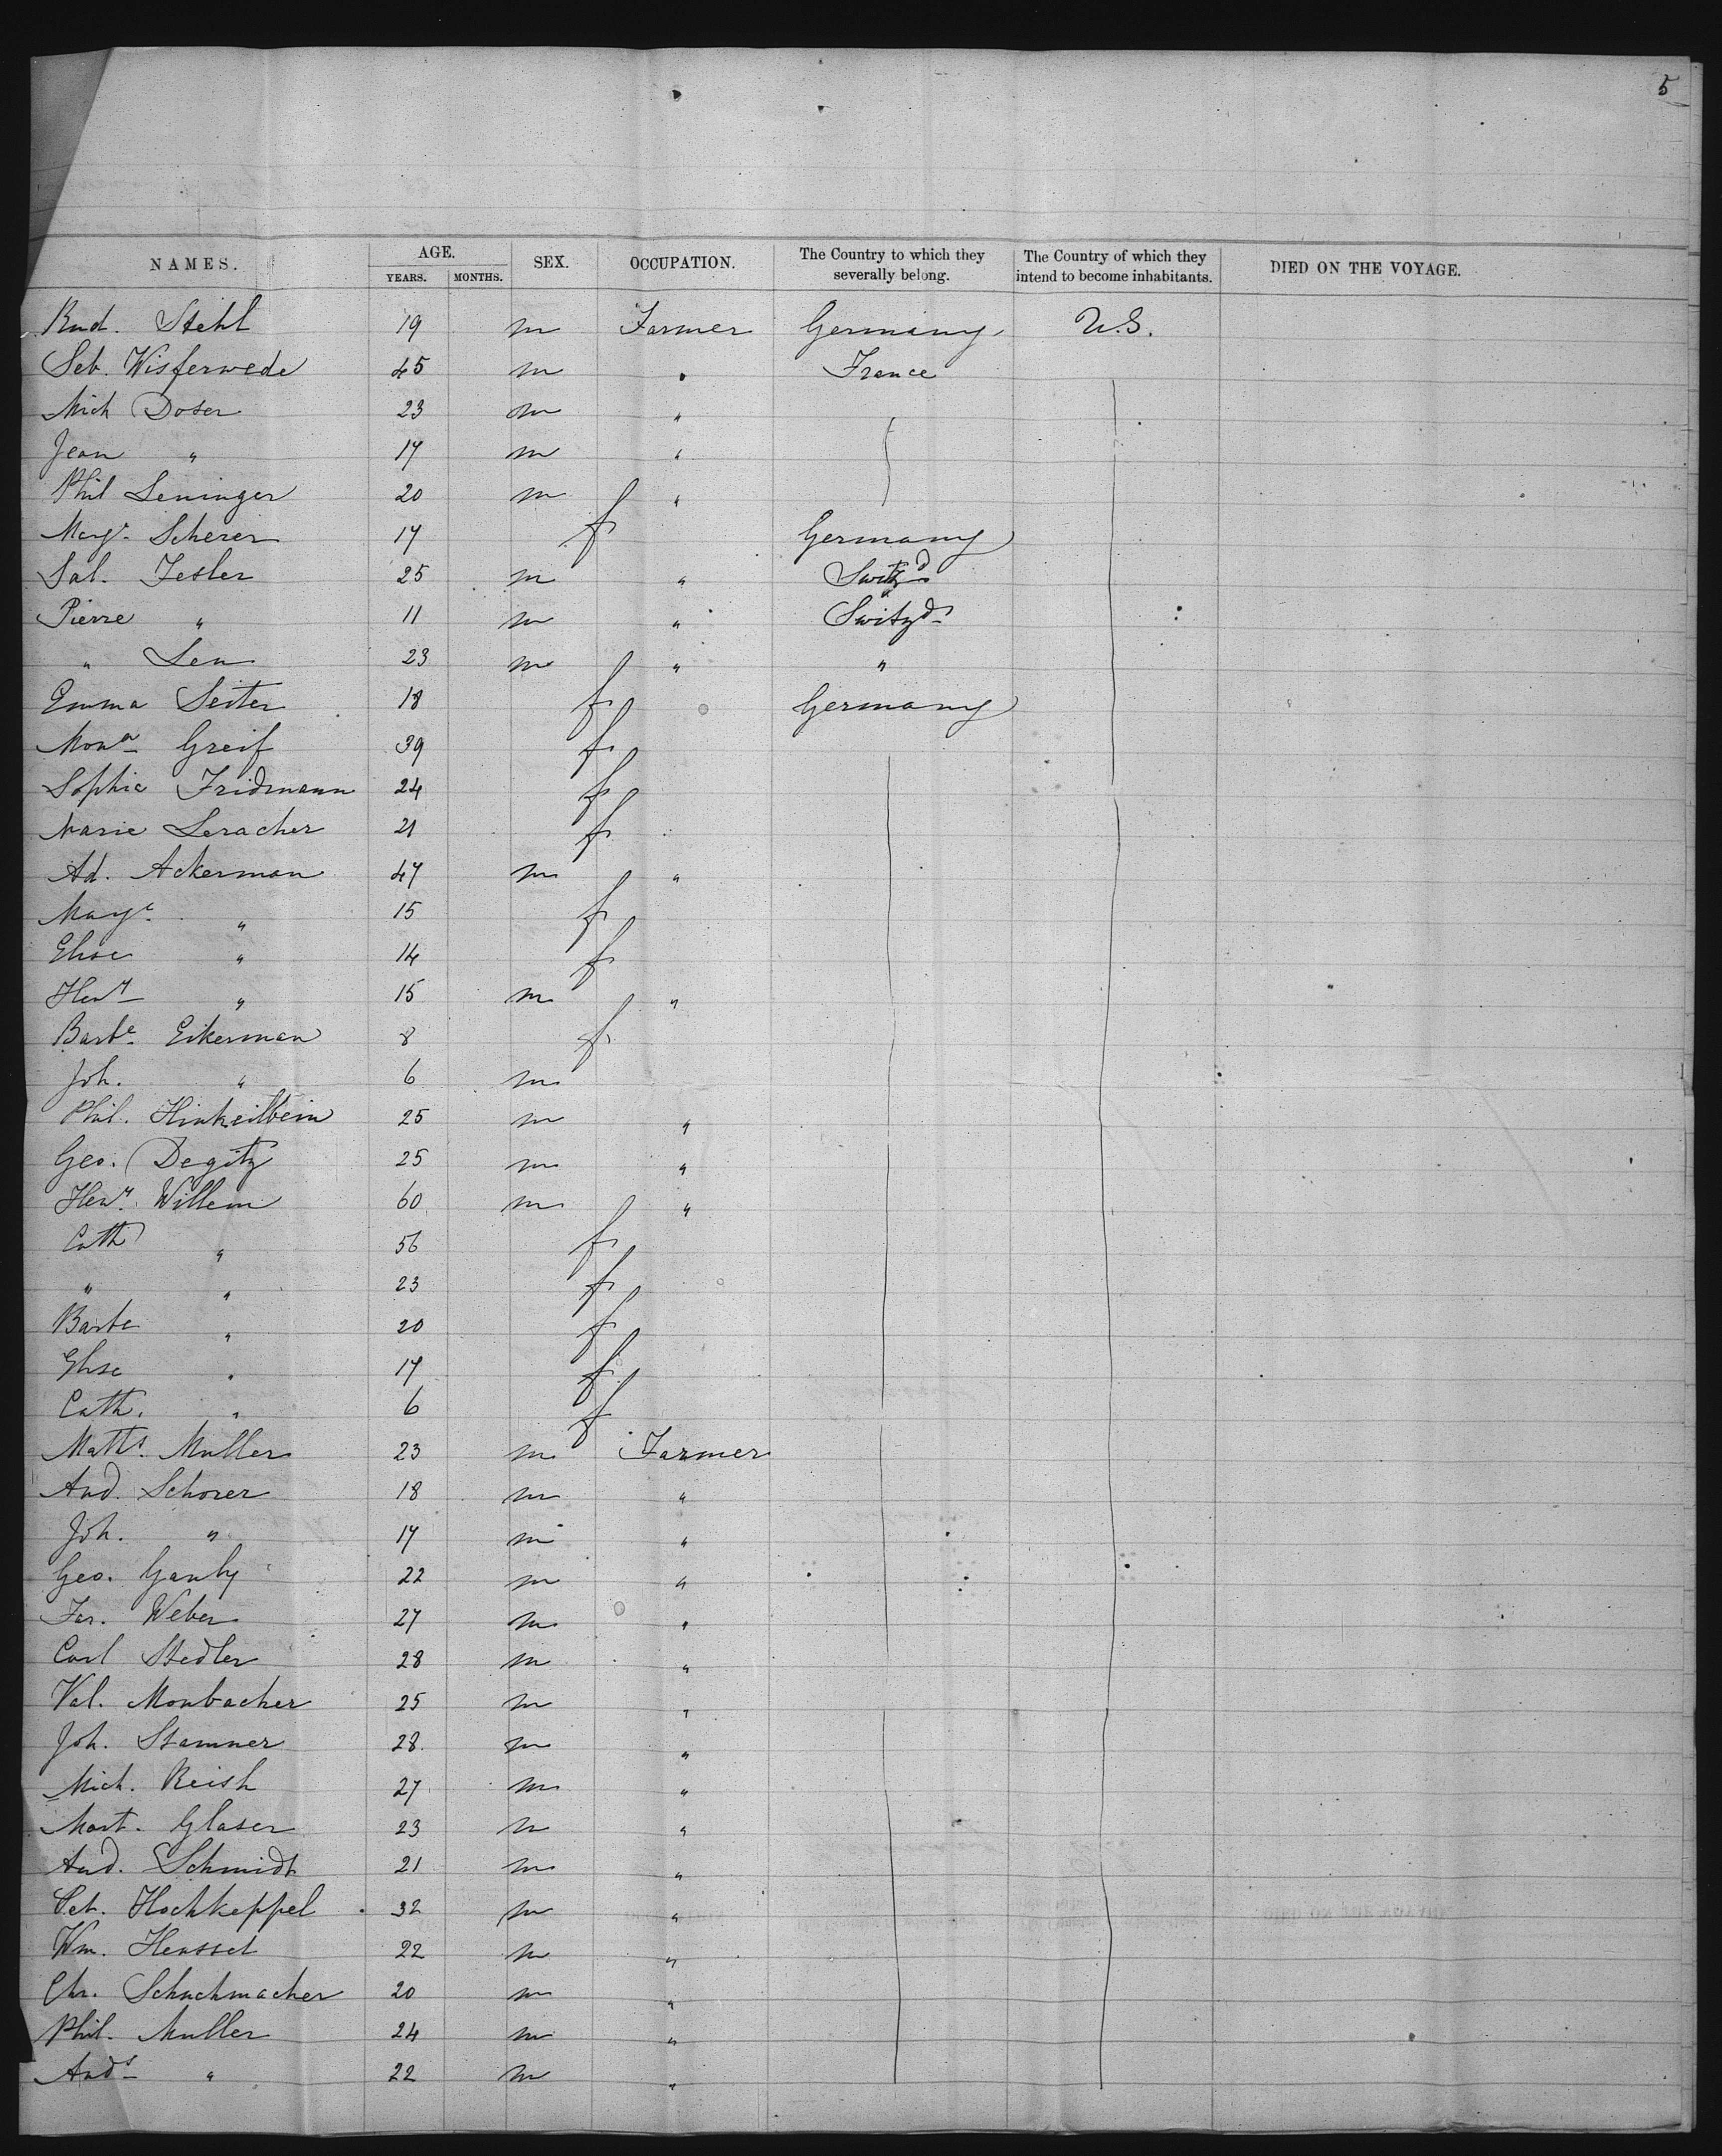 5
NAMES. AGE. YEARS. MONTHS. SEX. OCCUPATION. The Country to which they severally belong. The Country of which they intend to become inhabitants. DIED ON THE VOYAGE.
Rud. Stehl 19 m Farmer Germany U.S.
Seb. Wisferwede 45 m " France
Mich Doser 23 m "
Jean " 17 m "
Phil Leninger 20 m "
Margt. Scherer 17 f Germany
Sal. Jesler 25 m " Switzd
Pierre " 11 m " Switzd
" Leu 23 m " "
Emma Seiter 18 f Germany
Mona Greif 39 f
Sophie Fridmann 24 f
Marie Leracher 21 f
Ad. Ackerman 47 m "
Marge " 15 f
Elise " 14 f
Heny " 15 m "
Barbe Eikerman 8 f
Joh. " 6 m
Phil. Hinkeilbein 25 m "
Geo. Degitz 25 m "
Heny. Willem 60 m "
Cath " 56 f
" " 23 f
Barbe " 20 f
Elise " 17 f
Cath. " 6 f
Matts. Muller 23 m Farmer
And. Schorer 18 m "
Joh. " 17 m "
Geo. Gauly 22 m "
Jas. Weber 27 m "
Carl Stedler 28 m "
Val. Monbacher 25 m "
Joh. Stamner 28 m "
Mich. Reish 27 m "
Mart. Glaser 23 m "
And. Schmidt 21 m "
Seb. Hochkeppel 32 m "
Wm. Henssel 22 m "
Chr. Schuchmacher 20 m "
Phil. Muller 24 m "
Ands " 22 m "